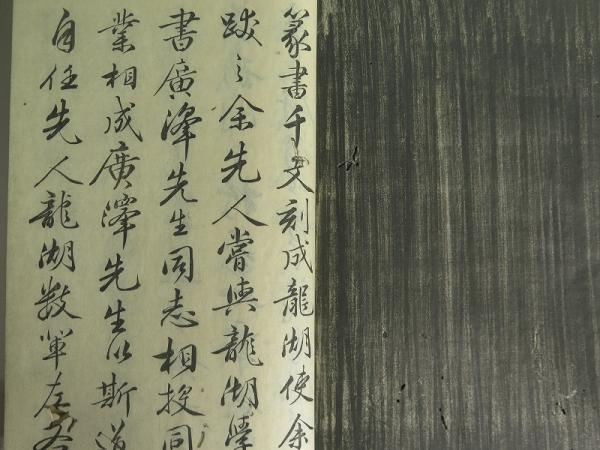 篆書千文刻成龍湖使余
跋之余先人嘗與龍湖學
書廣澤先生同志相投同
業相成廣澤先生以斯道
自任先人龍湖数輩左右